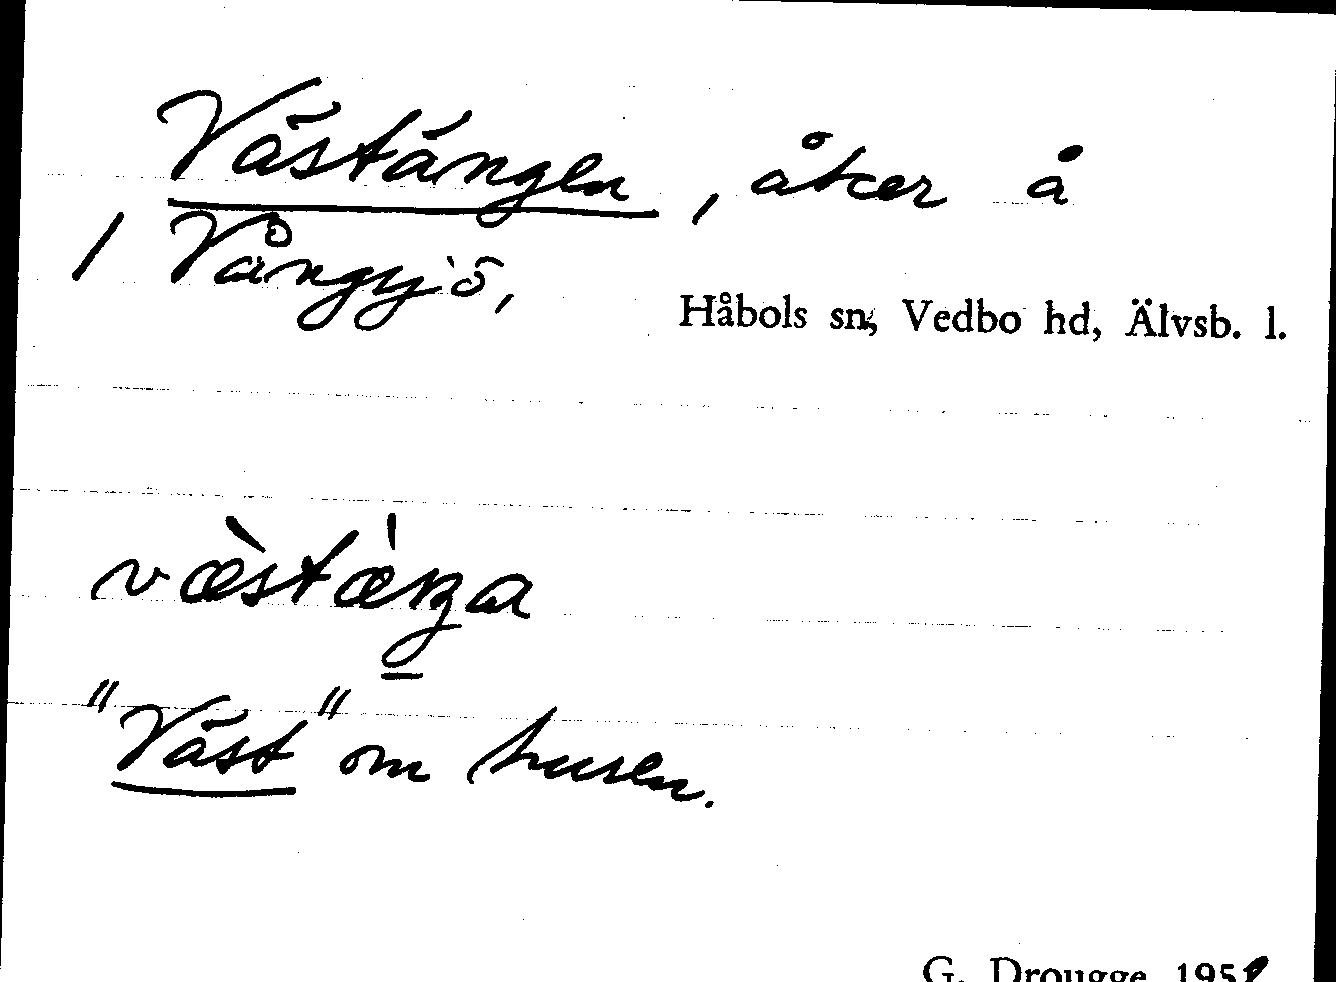 Västängen, åker å
1 Vångsjö,
Håbols sn, Vedbo hd, Älvsb. l.
væ̀stæ̀ŋa
"Väst" om husen.
G. Drougge 195